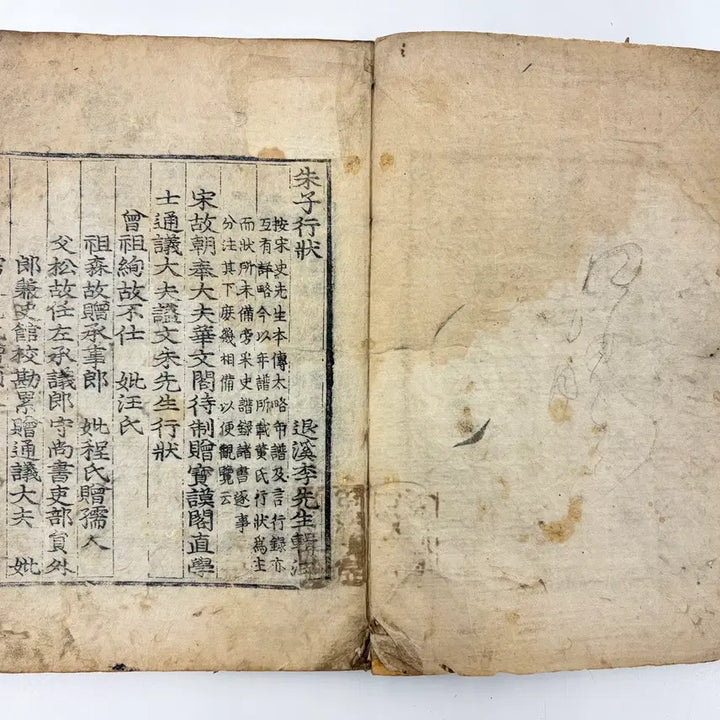 朱子行狀 退溪李先生輯注
按宋史先生本傳太略年譜及言行錄亦
互有詳略今以年譜所載黃氏行狀爲主
而狀所未備旁采史譜錄諸書逐事
分注其下庶幾相備以便觀覽云
宋故朝奉大夫華文閣待制贈寶謨閣直學
士通議大夫諡文朱先生行狀
曾祖絢故不仕 妣汪氏
祖森故贈承事郎 妣程氏贈孺人
父松故任左承議郎守尚書吏部員外
郎兼史館校勘累贈通議大夫 妣